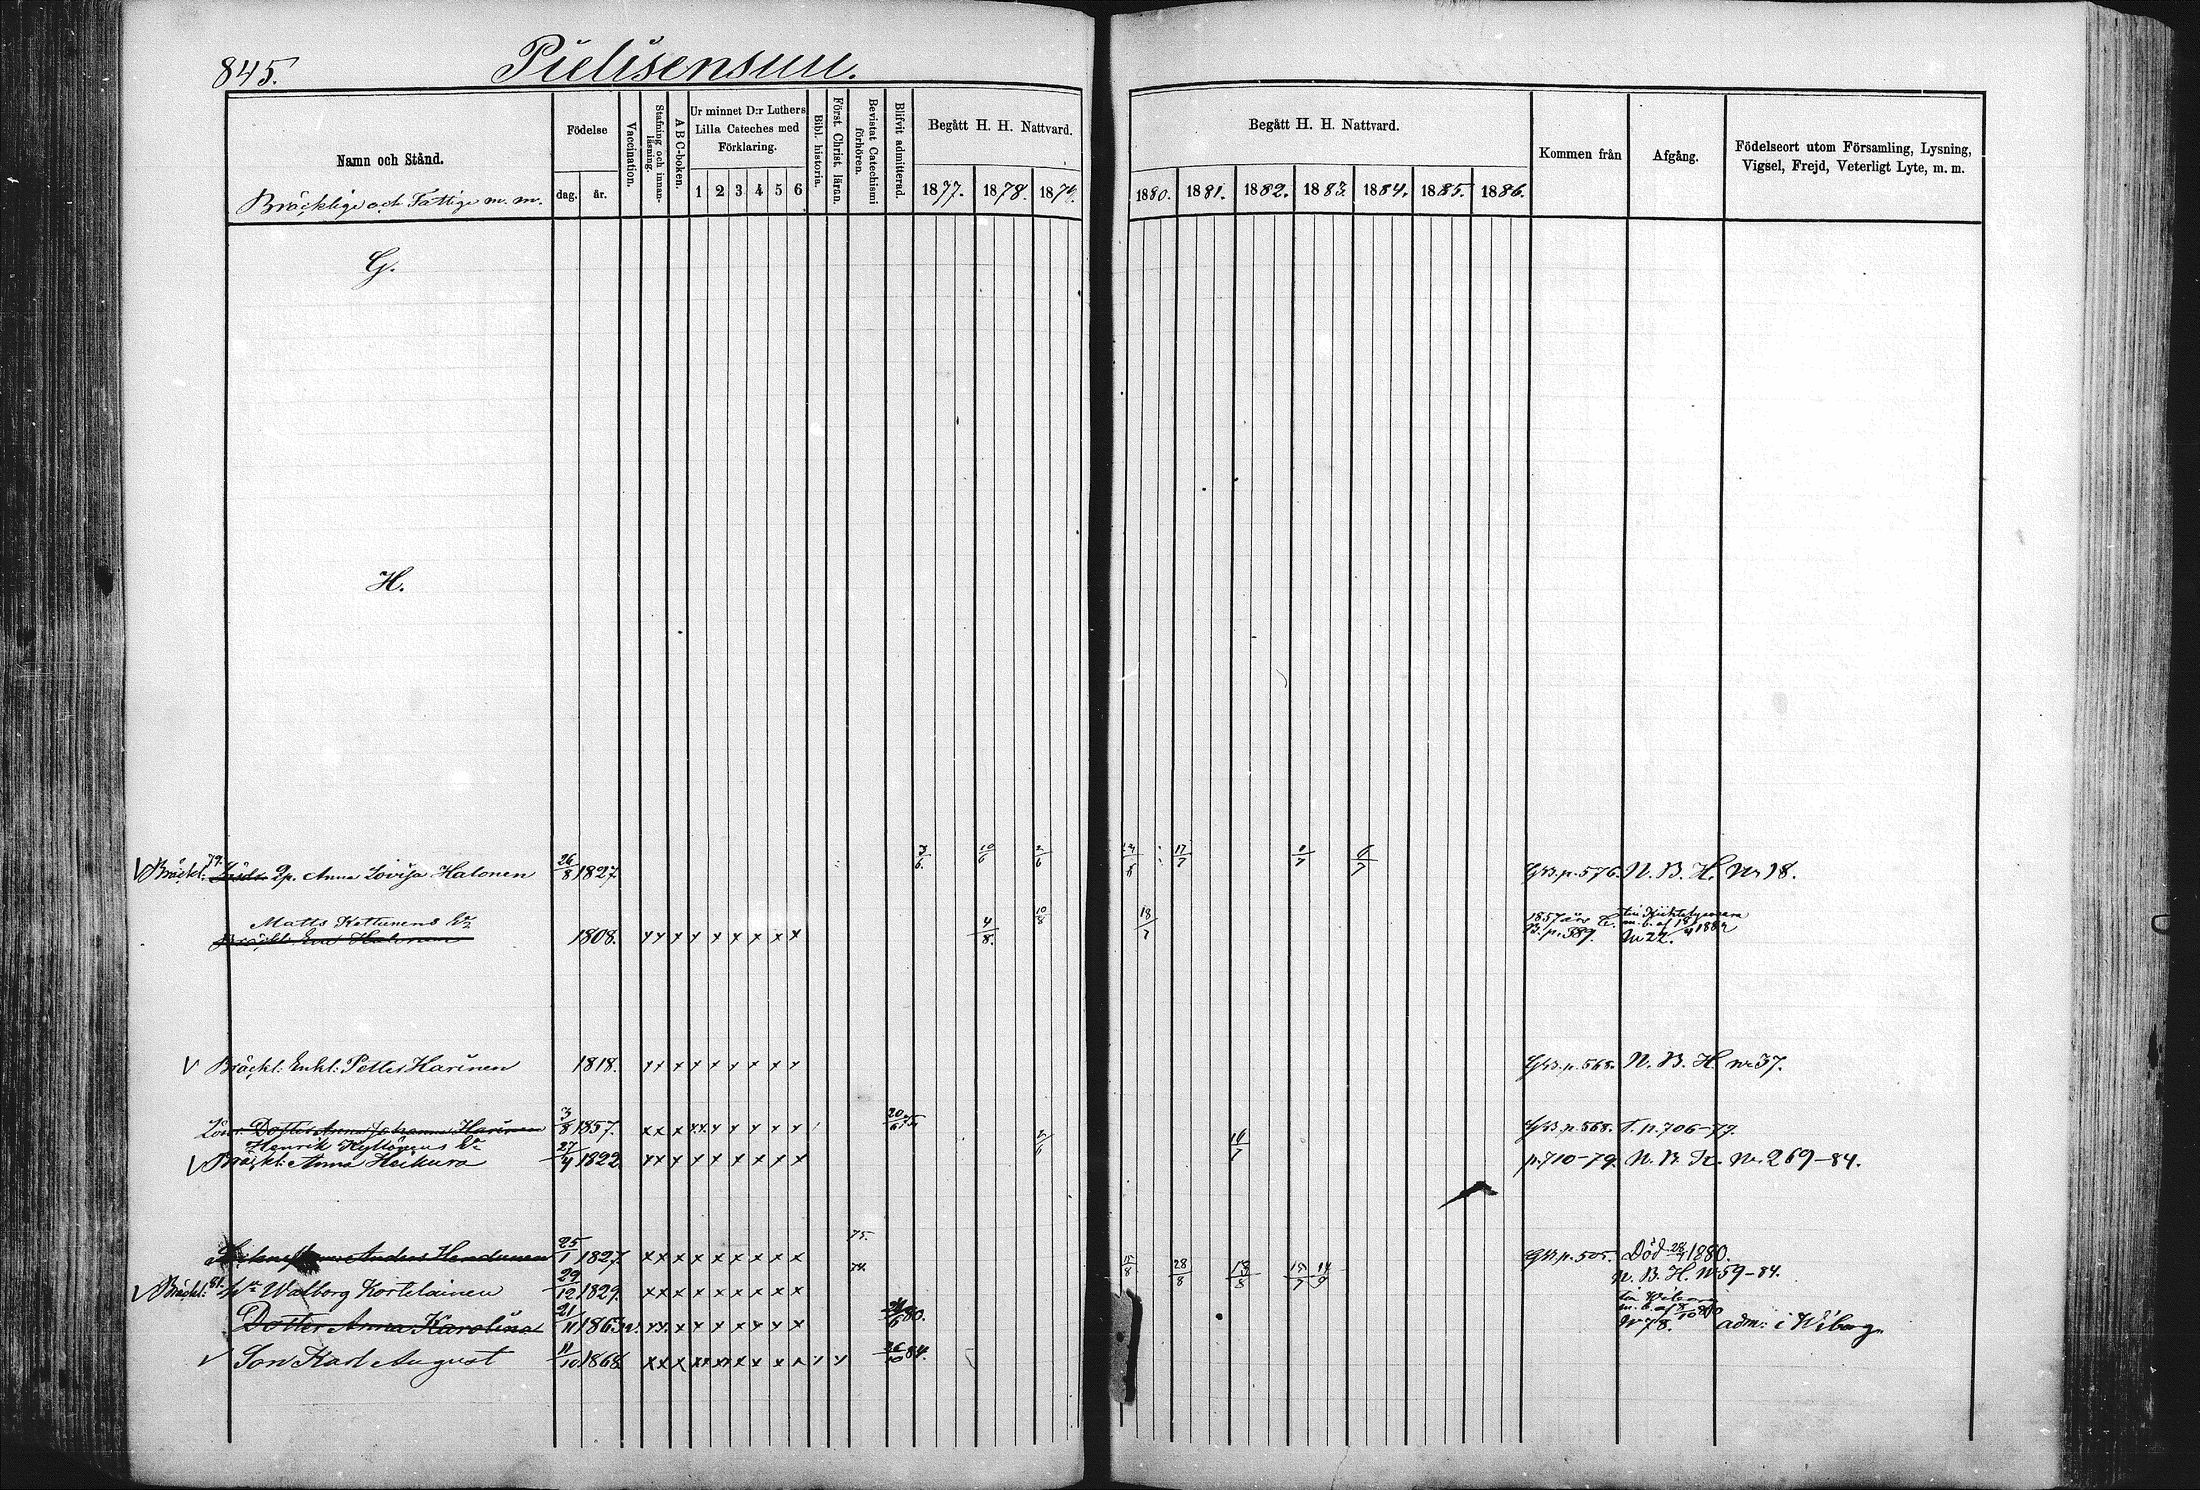 845.
Pielisensuu.
Namn och Stånd.
Bräcklige och Fattige m. m.
Födelse
dag. år.
Vaccination.
Stafning och innan-
läsning.
A B C-boken.
Ur minnet D:r Luthers
Lilla Cateches med
Förklaring.
1 2 3 4 5 6
Bibl. historia.
Först. Christ. läran.
Bevistat Catechismi
förhören.
Blifvit admitterad.
Begått H. H. Nattvard.
1877. 1878. 1879.
Begått H. H. Nattvard.
1880. 1881. 1882. 1883. 1884. 1885. 1886.
Kommen från
Afgång.
Födelseort utom Församling, Lysning,
Vigsel, Frejd, Veterligt Lyte, m. m.
G.
H.
V Bräckl. 79. Qp. Anna Lovisa Halonen 26/8 1827. 7/6 10/6 2/6 17/7 6/7 p. 576. N. B. H. Nr 18.
Matts Kettunens
Bräckl. Eva Halonen 1808. x x x x x x x x x 4/8. 10/8 18/7 1857 års B. p. 389. Nr 22.
V Bräckl: Enkl: Petter Harinen 1818. x x x x x x x x x p. 568. N. B. H. nr 37.
Dotter Anna Johanna Harinen 3/8 1857. x x x x x x x x x p. 568. T. p. 706-77.
Henrik
V Bräckl: Anna Heikura 27/4 1822 x x x x x x x x x 2/6 p. 710-79. N. B. Nr. 269-84.
Anders 25/1 1827. x x x x x x x x x 75. p. 505. Död 1880.
V Bräckl: 81. Walborg Kortelainen 29/12 1829. x x x x x x x x x 15/8 28/8 N. B. H. Nr 59-84.
Dotter Anna Karolina 21/11 1863 x x x x x x x x x 80. Nr 78. adm: i Wiborg
V Son Karl August 11/10 1868 x x x x x x x x x 84.